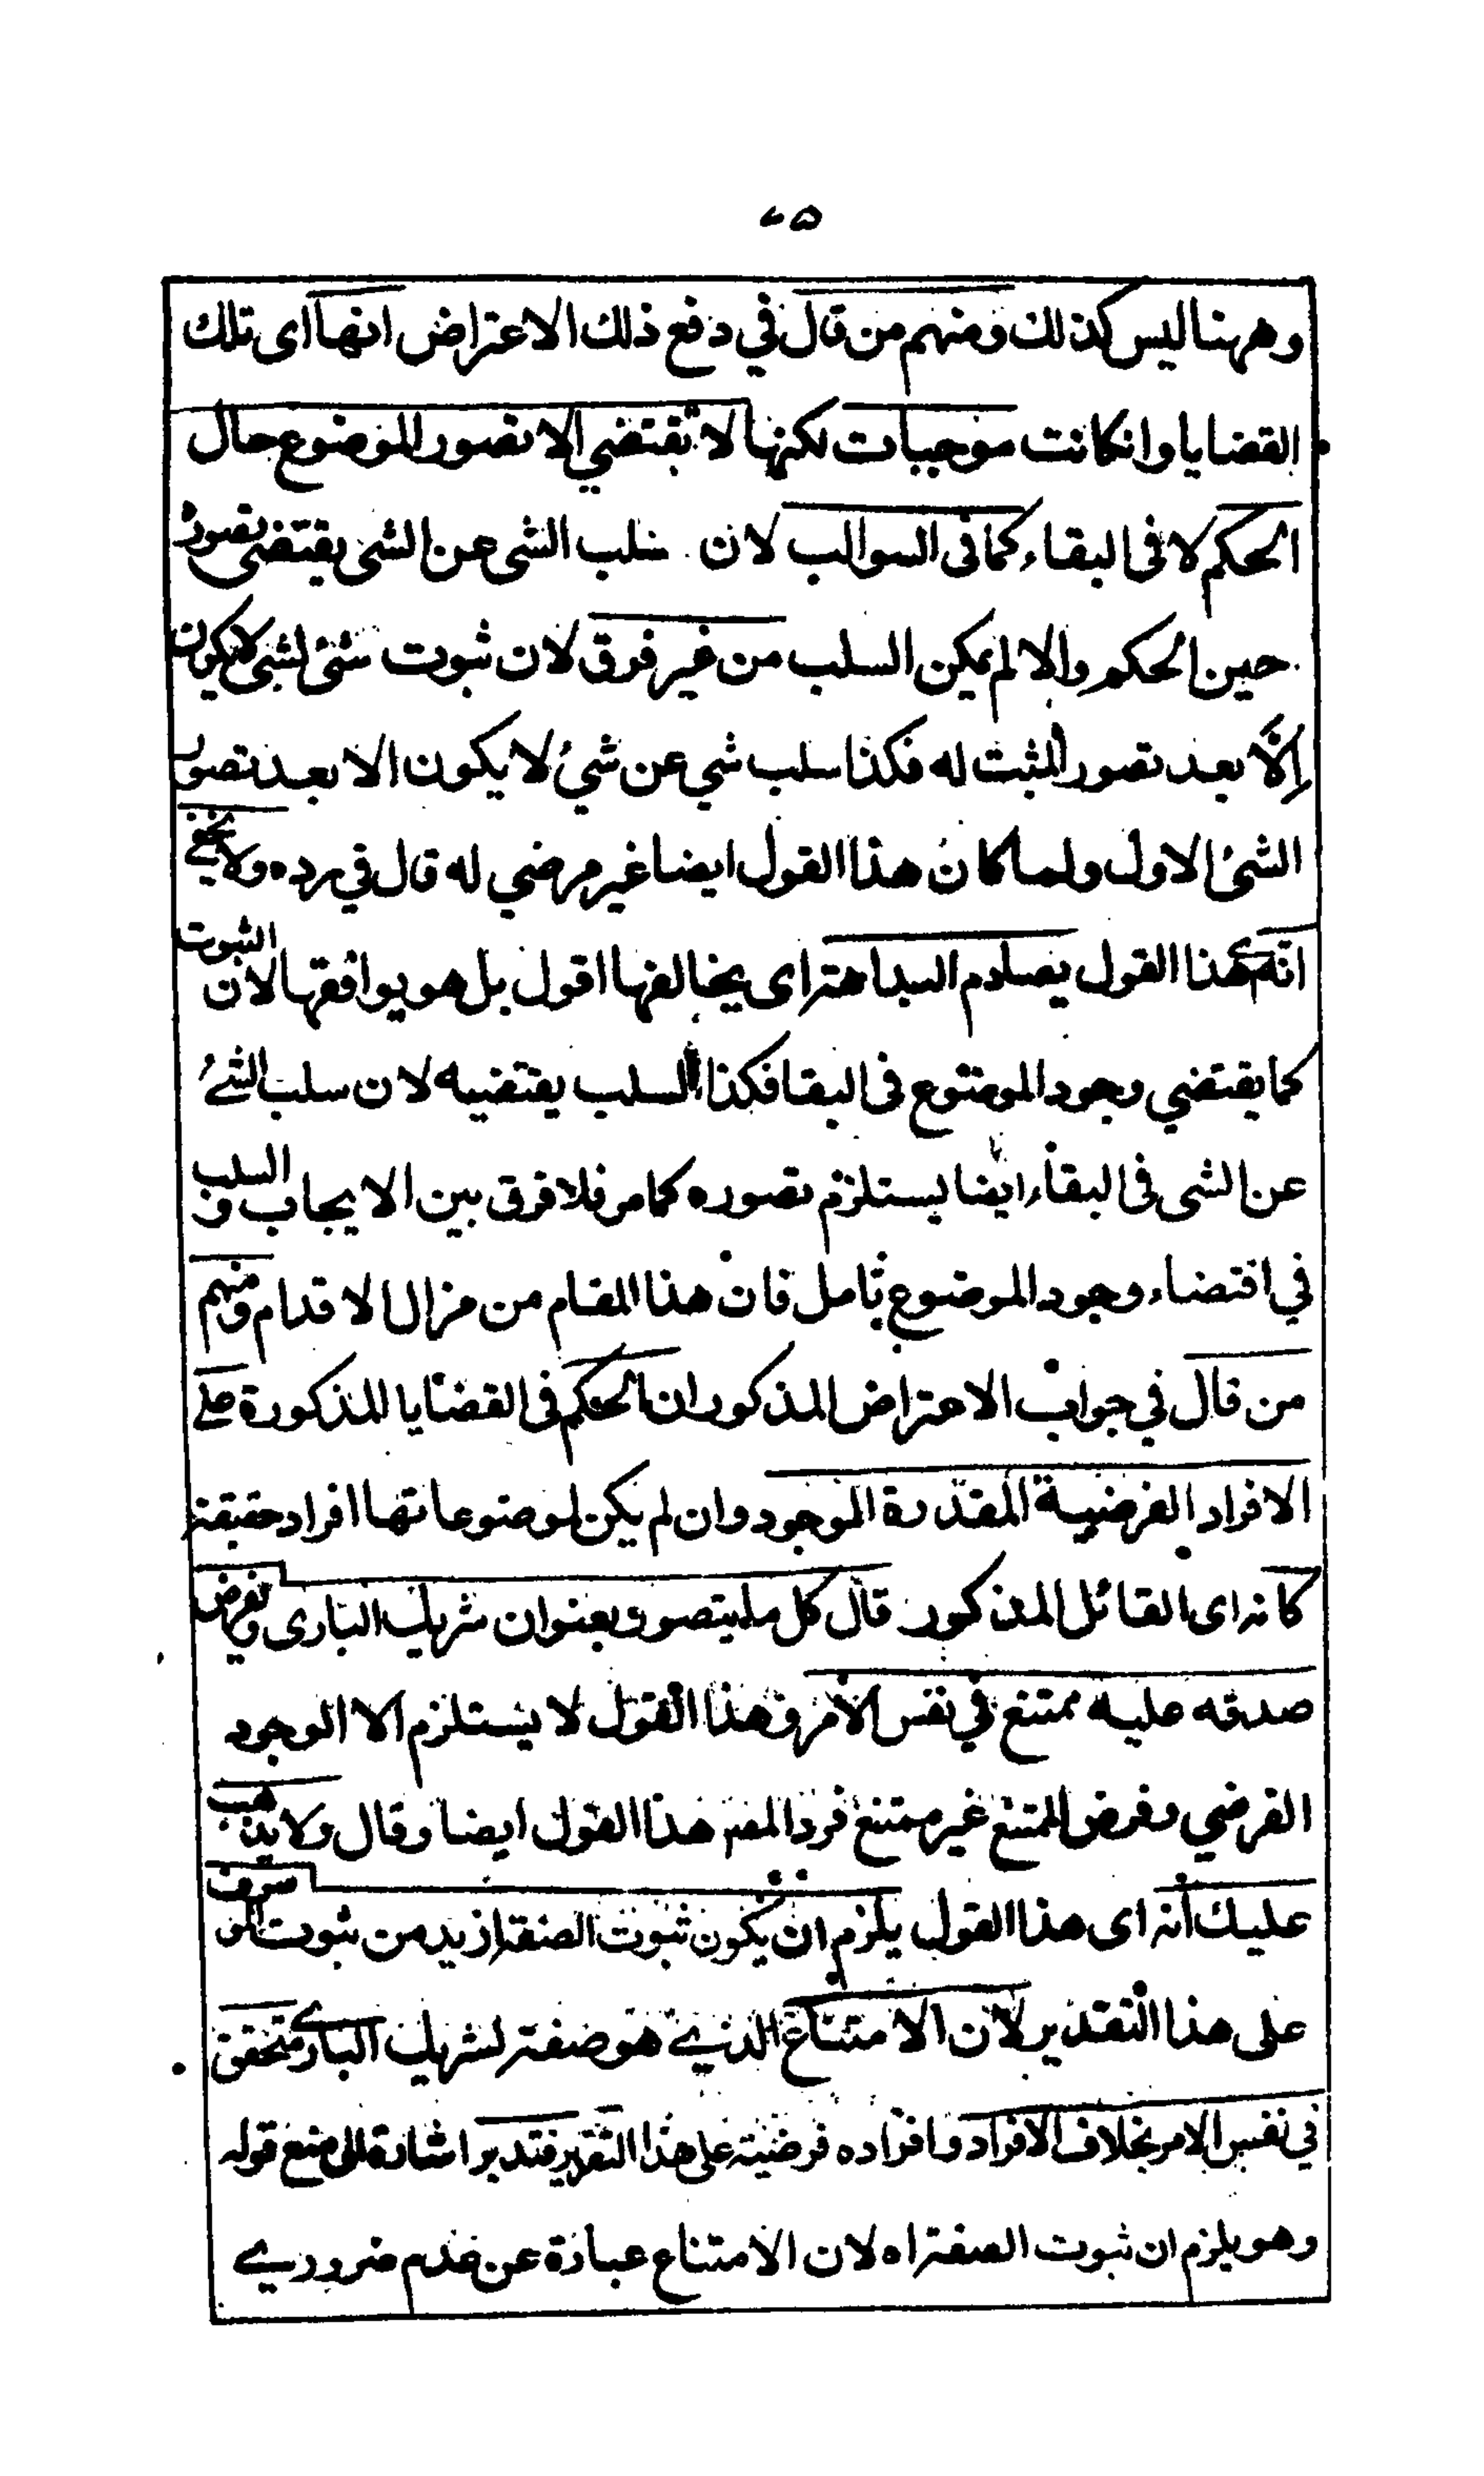 ٧٥
وههنا ليس كذلك ومنهم من قال في دفع ذلك الاعتراض انها اى تلك
القضايا وانكانت موجبات لكنها لا تقتضي الا تصور الموضوع حال
الحكم لا فى البقاء كما فى السوالب لان سلب الشى عن الشى يقتضى تصوره
حين الحكم والا لم يمكن السلب من غير فرق لان ثبوت شئ لشئ لا يكون
إلَّا بعد تصور المثبت له فكذا سلب شي عن شيُ لا يكون الا بعد تصور
الشئ الاول ولما كان هذا القول ايضا غير مرضي له قال في رده ولا يخفے
انّه اے هذا القول يصادم البداهة اى يخالفها اقول بل هو يوافقها لان الثبوت
كما يقتضي وجود الموضوع فى البقا فكذا السلب يقتضيه لان سلب الشئ
عن الشى فى البقاء ايضا يستلزم تصوره كما مر فلا فرق بين الايجاب و السلب
في اقتضاء وجود الموضوع تامل فان هذا المقام من مزال الاقدام ومنهم
من قال في جواب الاعتراض المذكور ان الحكم فى القضايا المذكورة علے
الافراد الفرضية المقدرة الموجود وان لم يكن لموضوعاتها افراد حقيقة
كانه اى القائل المذكور قال كل ما يتصور بعنوان شريك البارى ويفرض
صدقه عليه ممتنع في نفس الأمر وهذا القول لا يستلزم الا الوجود
الفرضي وفرض الممتنع غير ممتنع فرد المصـ هذا القول ايضا وقال ولا يذهب
عليك أنه اى هذا القول يلزم ان يكون ثبوت الصفة ازيد من ثبوت الموصوف
على هذا التقدير لان الامتناع الذے هو صفة لشريك البارے متحقق
في نفس الامر بخلاف الافراد وافراده فرضية على هذا التقرير فتدبر اشارة الى منع قوله
وهو يلزم ان ثبوت الصفة اه لان الامتناع عبارة عن عدم ضرورے